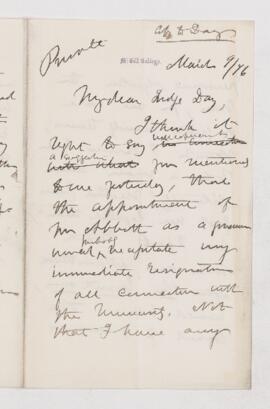 Cop. to Day
Private
McGill College,
March 9/76
My dear Judge Day,
I think it
right to say with reference to
a suggestion you mentioned
to me yesterday, that
the appointment of
Mr Abbott as a governor
would probably necessitate my
immediate resignation
of all connection with
the University. Not
that I have any